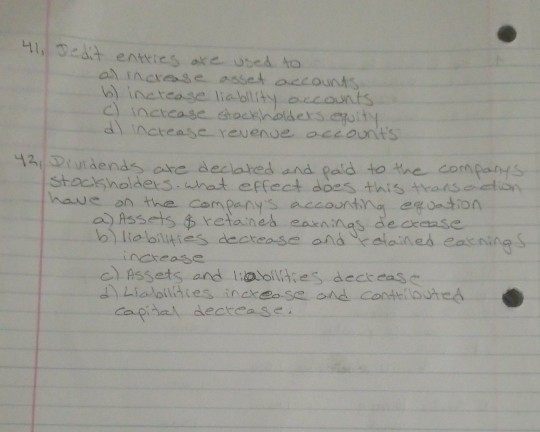 41, Jedit entries are used to
a) increase asset accounts
b) increase liability accounts
c) increase stockholders equity
d) increase revenue accounts
42, Dividends are declared and paid to the company's
stockholders. what effect does this transaction
have on the company's accounting equation
a) Assets & retained earnings decrease
b) liabilities decrease and retained earnings
increase
c) Assets and liabilities decrease
d) Liabilities increase and contributed
capital decrease.